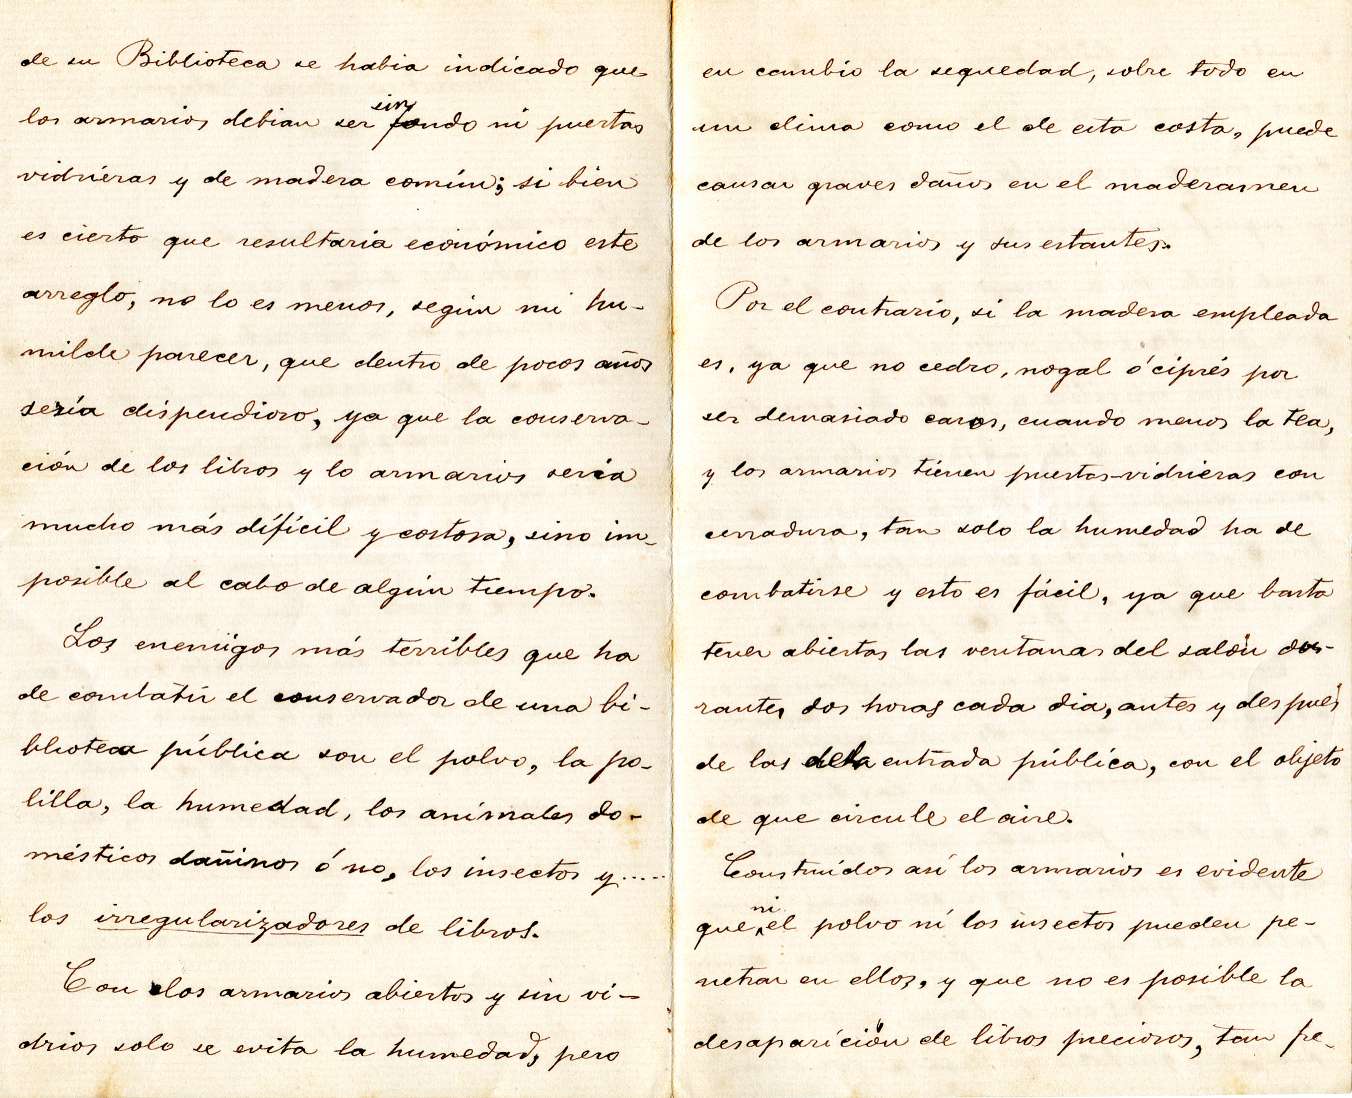 de su Biblioteca se habia indicado que
los armarios debian ser sin fondo ni puertas
vidrieras y de madera común; si bien
es cierto que resultaria económico este
arreglo, no lo es menos, según mi hu-
milde parecer, que dentro de pocos años
sería dispendioso, ya que la conserva-
ción de los libros y lo armarios sería
mucho más difícil y costosa, sino im-
posible al cabo de algún tiempo.
Los enemigos más terribles que ha
de combatir el conservador de una bi-
blioteca pública son el polvo, la po-
lilla, la humedad, los animales do-
mésticos dañinos ó no, los insectos y .....
los irregularizadores de libros.
Con los armarios abiertos y sin vi-
drios solo se evita la humedad, pero
en cambio la sequedad, sobre todo en
un clima como el de esta costa, puede
causar graves daños en el maderamen
de los armarios y sus estantes.
Por el contrario, si la madera empleada
es, ya que no cedro, nogal ó ciprés por
ser demasiado caros, cuando menos la tea,
y los armarios tienen puertas-vidrieras con
cerradura, tan solo la humedad ha de
combatirse y esto es fácil, ya que basta
tener abiertas las ventanas del salón du-
rante, dos horas cada dia, antes y después
de las de la entrada pública, con el objeto
de que circule el aire.
Construídos así los armarios es evidente
que ni el polvo ni los insectos pueden pe-
netrar en ellos, y que no es posible la
desaparición de libros preciosos, tan fe-